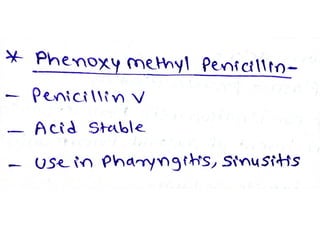 * Phenoxy methyl Penicillin-
- Penicillin V
- Acid Stable
- Use in Pharyngitis, Sinusitis